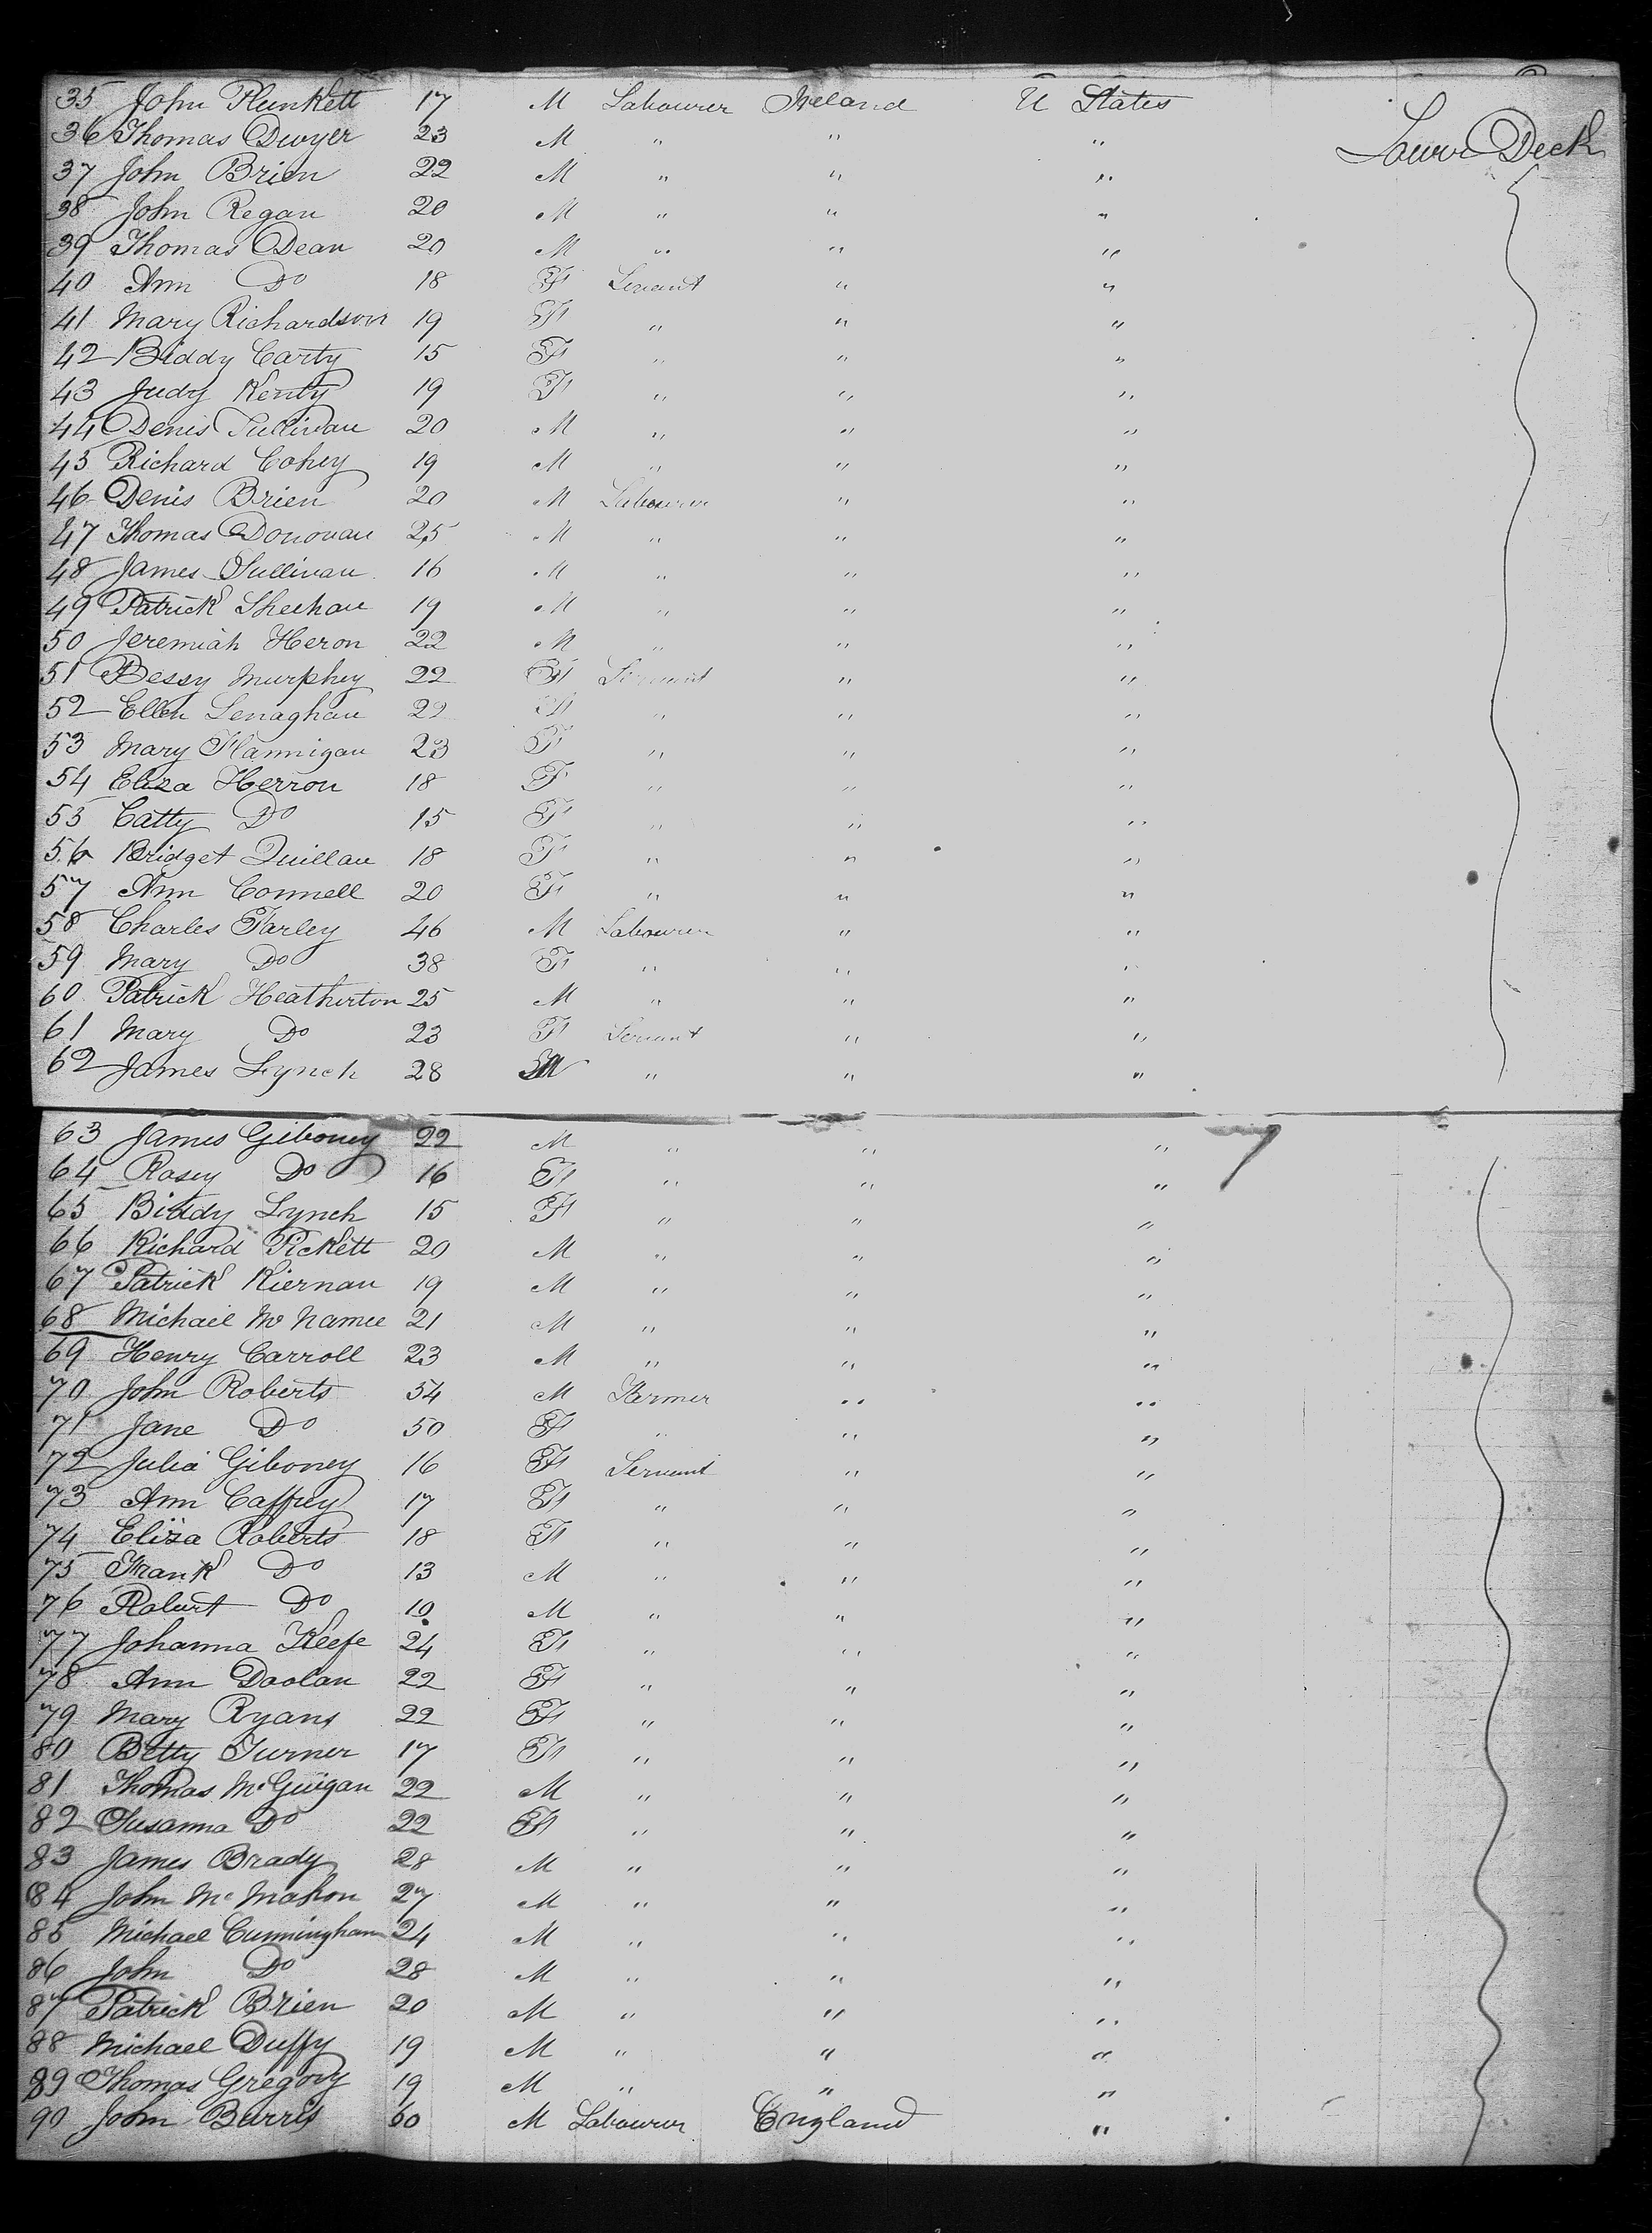 35 John Plunkett 17 M Labourer Ireland U States
Lower Deck
36 Thomas Dwyer 23 M " " "
37 John Brien 22 M " " "
38 John Regan 20 M " " "
39 Thomas Dean 20 M " " "
40 Ann Do 18 F Servant " "
41 Mary Richardson 19 F " " "
42 Biddy Carty 15 F " " "
43 Judy Kenty 19 F " " "
44 Denis Sullivan 20 M " " "
45 Richard Cohey 19 M " " "
46 Denis Brien 20 M Labourer " "
47 Thomas Donovan 25 M " " "
48 James Sullivan 16 M " " "
49 Patrick Sheehan 19 M " " "
50 Jeremiah Heron 22 M " " "
51 Bessy Murphey 22 F Servant " "
52 Ellen Lenaghan 22 F " " "
53 Mary Flannigan 23 F " " "
54 Eliza Herron 18 F " " "
55 Catty Do 15 F " " "
56 Bridget Quillan 18 F " " "
57 Ann Connell 20 F " " "
58 Charles Farley 46 M Labourer " "
59 Mary Do 38 F " " "
60 Patrick Heatherton 25 M " " "
61 Mary Do 23 F Servant " "
62 James Lynch 28 M " " "
63 James Giboney 22 M " " "
64 Rosey Do 16 F " " "
65 Biddy Lynch 15 F " " "
66 Richard Pickett 20 M " " "
67 Patrick Kiernan 19 M " " "
68 Michael Mc Namee 21 M " " "
69 Henry Carroll 23 M " " "
70 John Roberts 54 M Farmer " "
71 Jane Do 50 F " " "
72 Julia Giboney 16 F Servant " "
73 Ann Caffrey 17 F " " "
74 Eliza Roberts 18 F " " "
75 Frank Do 13 M " " "
76 Robert Do 10 M " " "
77 Johanna Keefe 24 F " " "
78 Ann Doolan 22 F " " "
79 Mary Ryans 22 F " " "
80 Betty Turner 17 F " " "
81 Thomas McGuigan 22 M " " "
82 Susanna Do 22 F " " "
83 James Brady 28 M " " "
84 John Mc Mahon 27 M " " "
85 Michael Cunningham 24 M " " "
86 John Do 28 M " " "
87 Patrick Brien 20 M " " "
88 Michael Duffy 19 M " " "
89 Thomas Gregory 19 M " " "
90 John Burris 60 M Labourer England "